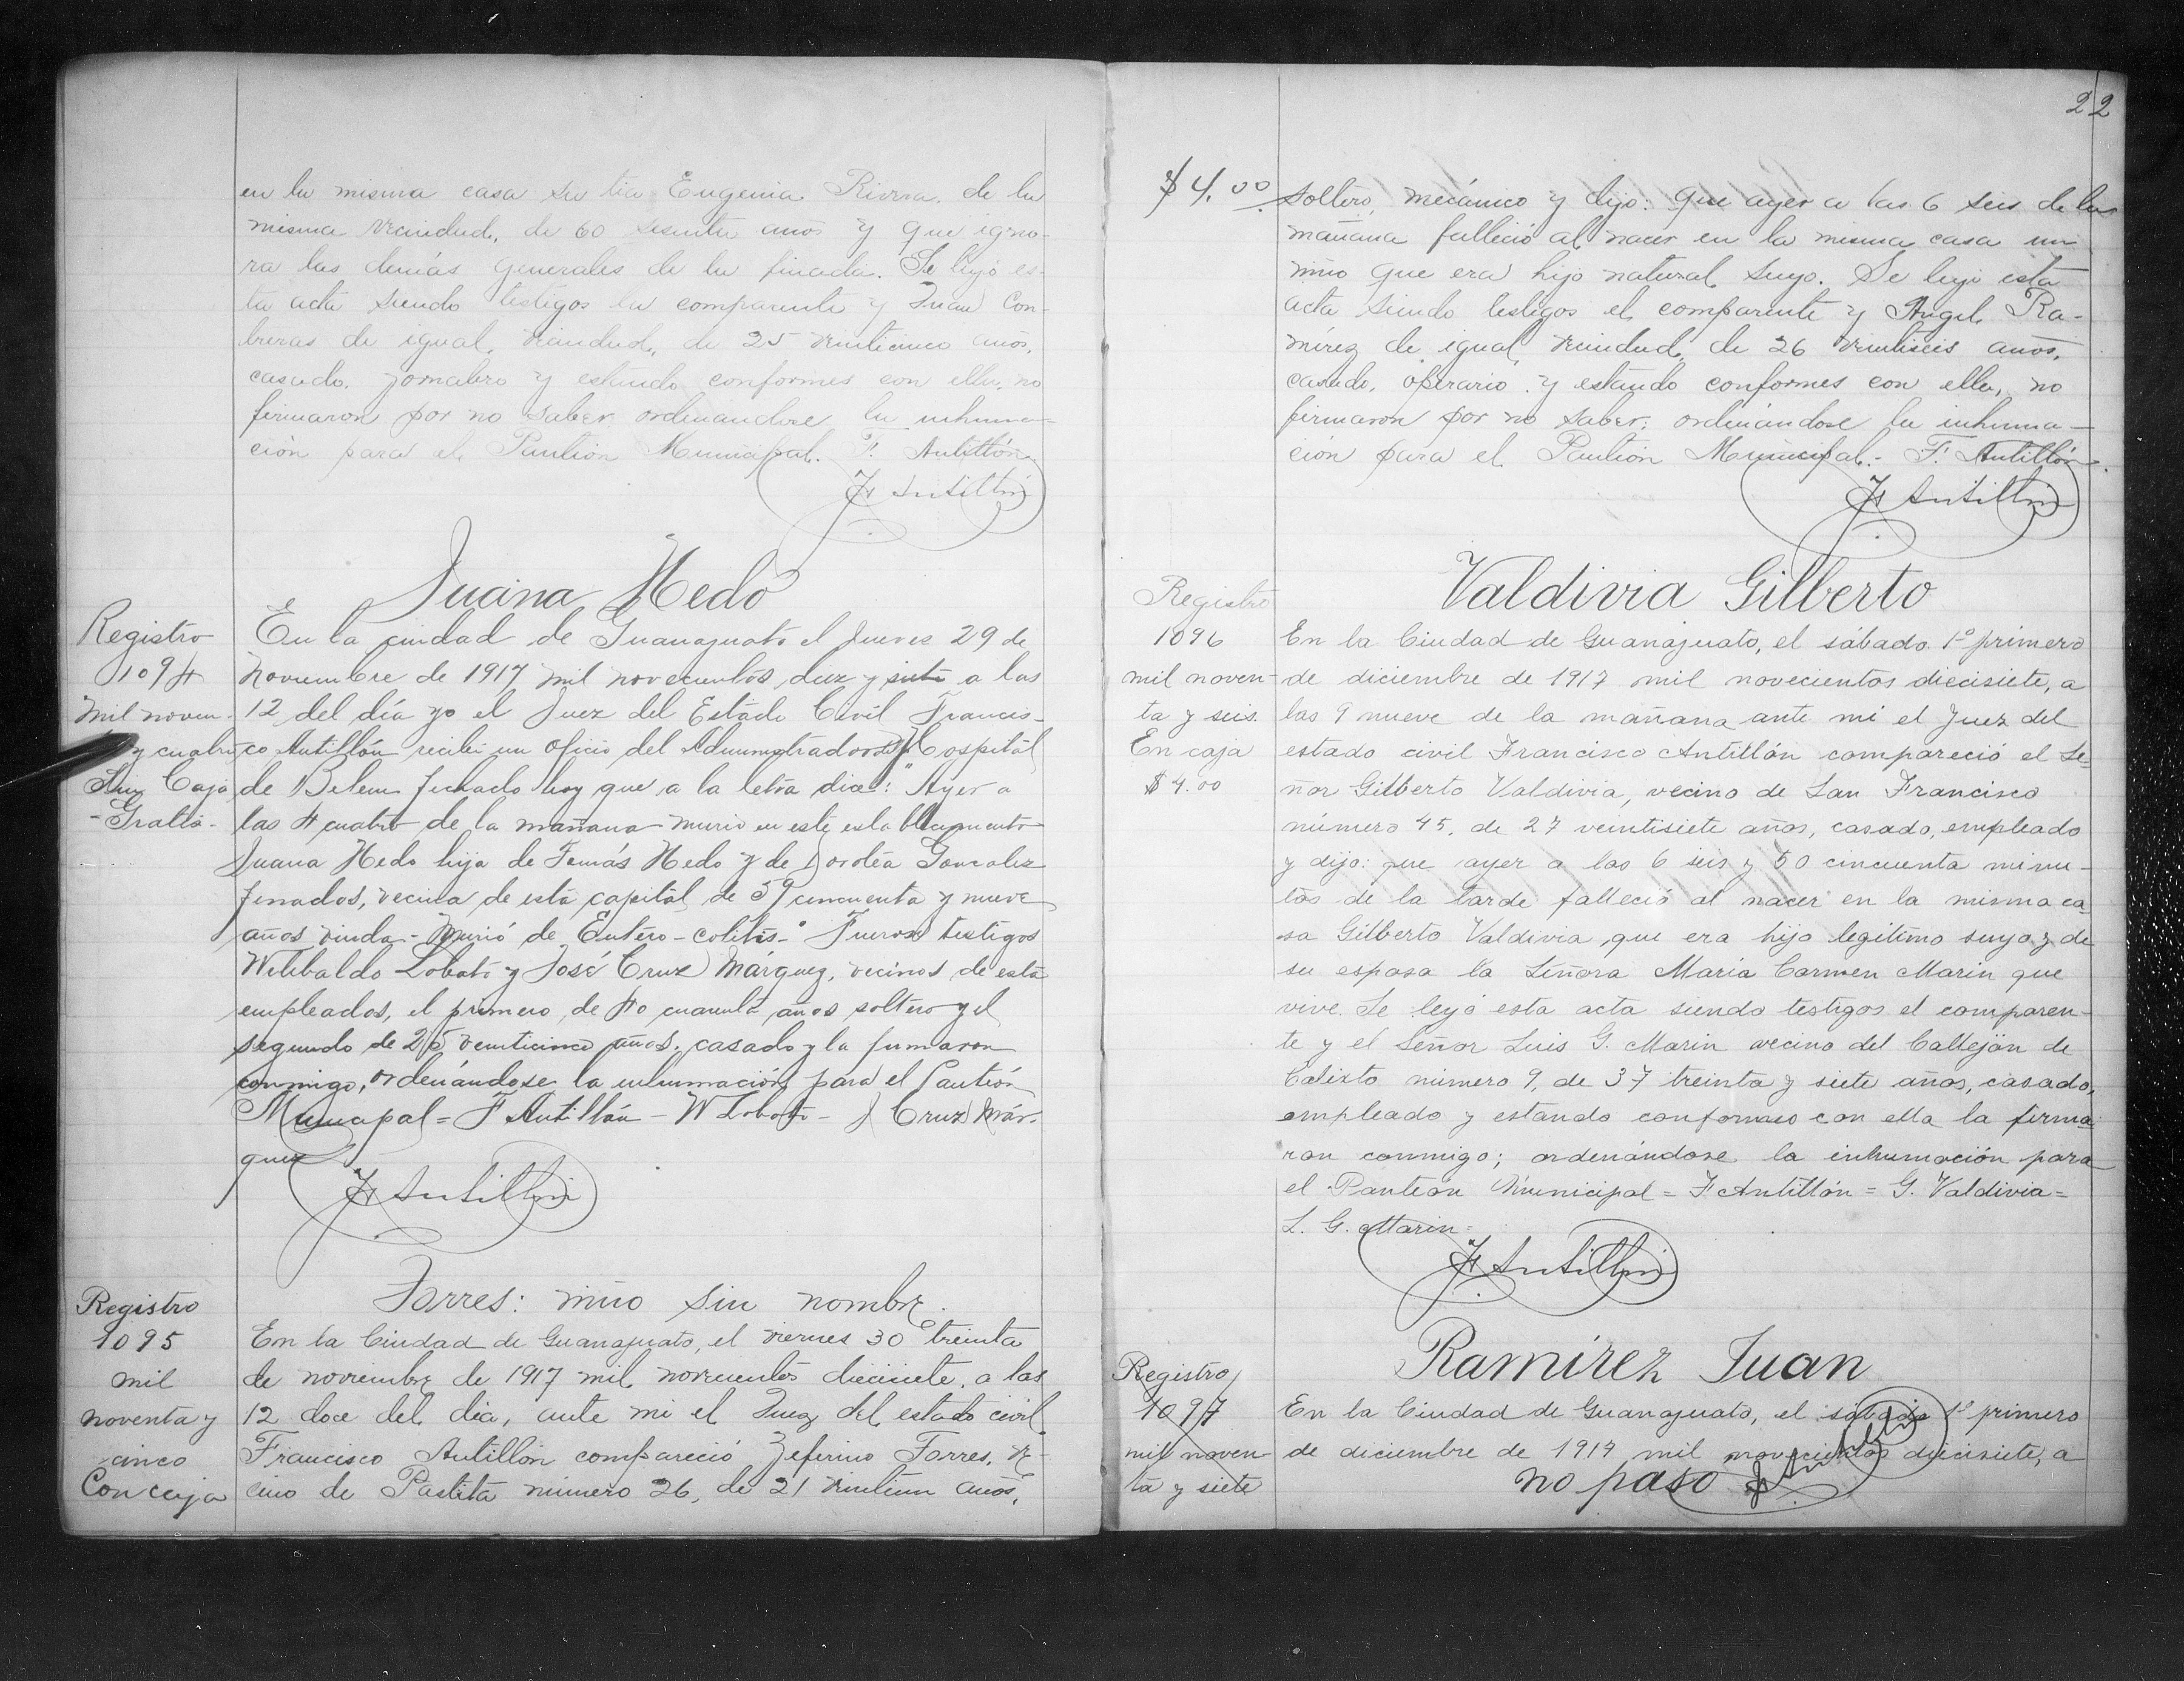 en la misma casa su tia Eugenia Rivera de la
misma vecindad, de 60 sesenta años y que igno-
ra las demás generales de la finada. Se leyó es-
ta acta siendo testigos la comparente y Juan Con-
treras de igual vecindad, de 25 veinticinco años,
casado, jornalero y estando conformes con ella, no
firmaron por no saber ordenándose la inhuma-
ción para el Panteón Municipal. F. Antillón.
F Antillón
Juana Nedo
Registro
1094
mil noven-
y cuatro
Sin Caja
-Gratis-
En la ciudad de Guanajuato el Jueves 29 de
noviembre de 1917 mil novecientos diez y siete a las
12 del día yo el Juez del Estado Civil Francis-
co Antillón recibí un oficio del Administrador del Hospital
de Belem fechado hoy que a la letra dice: "Ayer a
las 4 cuatro de la mañana murió en este establecimiento
Juana Nedo hija de Tomás Nedo y de Dorotéa Gonzalez
finados, vecina de esta capital, de 59 cincuenta y nueve
años viuda - Murió de Entero-colitis-" Fueron testigos
Wilibaldo Lobato y José Cruz Márquez, vecinos de esta
empleados, el primero de 40 cuarenta años soltero y el
segundo de 25 veinticinco años, casado y la firmaron
conmigo, ordenándose la inhumación para el Panteón
Municipal = F Antillón - W Lobato - J Cruz Már-
quez
F Antillón
Torres: niño sin nombre.
Registro
1095
mil
noventa y
cinco
Con caja
En la Ciudad de Guanajuato, el viernes 30 treinta
de noviembre de 1917 mil novecientos diecisiete, a las
12 doce del día, ante mi el Juez del estado civil
Francisco Antillón compareció Zeferino Torres, ve-
cino de Pastita número 26, de 21 veintiun años,
22
$4.00
soltero, mecánico y dijo: que ayer a las 6 seis de la
mañana falleció al nacer en la misma casa un
niño que era hijo natural suyo. Se leyó esta
acta siendo testigos el comparente y Angel Ra-
mírez de igual vecindad, de 26 veintiseis años,
casado, operario y estando conformes con ella, no
firmaron por no saber; ordenándose la inhuma-
ción para el Panteón Municipal.- F. Antillón.
F Antillón
Valdivia Gilberto
Registro
1096
mil noven-
ta y seis.
En caja
$4.00
En la Ciudad de Guanajuato, el sábado 1º primero
de diciembre de 1917 mil novecientos diecisiete, a
las 9 nueve de la mañana ante mi el Juez del
estado civil Francisco Antillón compareció el Se-
ñor Gilberto Valdivia, vecino de San Francisco
número 45, de 27 veintisiete años, casado, empleado
y dijo: que ayer a las 6 seis y 50 cincuenta minu-
tos de la tarde falleció al nacer en la misma ca-
sa Gilberto Valdivia, que era hijo legitimo suyo y de
su esposa la Señora María Carmen Marin que
vive. Se leyó esta acta siendo testigos el comparen-
te y el Señor Luis G. Marin vecino del Callejón de
Calixto número 9, de 37 treinta y siete años, casado,
empleado y estando conformes con ella la firma-
ron conmigo; ordenándose la inhumación para
el Panteón Municipal = F Antillón = G. Valdivia =
L. G. Marin =
F Antillón
Ramírez Juan
Registro
1097
mil noven-
ta y siete
En la Ciudad de Guanajuato, el sábado 1º primero
de diciembre de 1917 mil novecientos diecisiete, a
no paso F Antillón